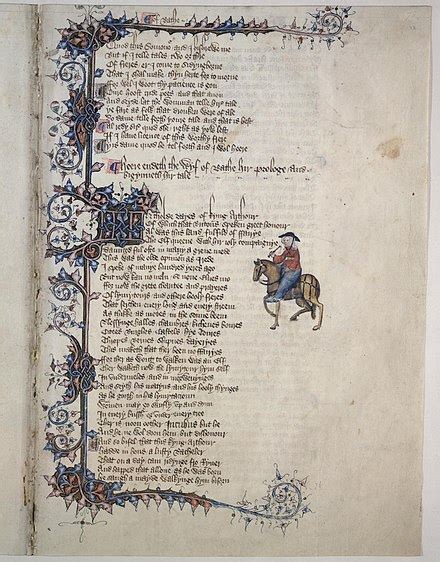 Of Bathe
Quod this Somonour and I bishrewe me
But if I telle tales two or thre
Of freres er I come to Sidyngborne
That I shal make thyn herte for to morne
For wel I woot thy pacience is gon
Oure hoost cride pees and that anon
And seyde lat the womman telle hire tale
Ye fare as folk that dronken were of ale
Do dame telle forth youre tale and that is best
Al redy sire quod she right as yow lest
If I haue licence of this worthy frere
Yis dame quod he tel forth and I wol heere
Heere endeth the Wyf of Bathe hir Prologe And
bigynneth hir tale
In tholde dayes of kyng Arthour
Of which that Britons speken greet honour
Al was this land fulfild of fairye
The Elf queene with hir ioly compaignye
Daunced ful ofte in many a grene mede
This was the olde opinion as I rede
I speke of manye hundred yeres ago
But now kan no man se none Elues mo
For now the grete charitee and prayeres
Of lymytours and othere hooly freres
That serchen euery lond and euery streem
As thikke as motes in the sonne beem
Blessynge halles chambres kichenes boures
Citees Burghes Castels hye Toures
Thropes Bernes Shipnes Dayeryes
This maketh that ther been no fairyes
For ther as wont to walken was an Elf
Ther walketh now the lymytour hym self
In vndermeles and in morwenynges
And seyth his matyns and his hooly thynges
As he gooth in his lymytacioun
Wommen may go saufly vp and doun
In euery bussh or vnder euery tree
Ther is noon oother Incubus but he
And he ne wol doon hem but dishonour
And so bifel that this kyng Arthour
Hadde in hous a lusty Bacheler
That on a day cam ridynge fro Ryuer
And happed that allone as he was born
He saugh a mayde walkynge hym biforn